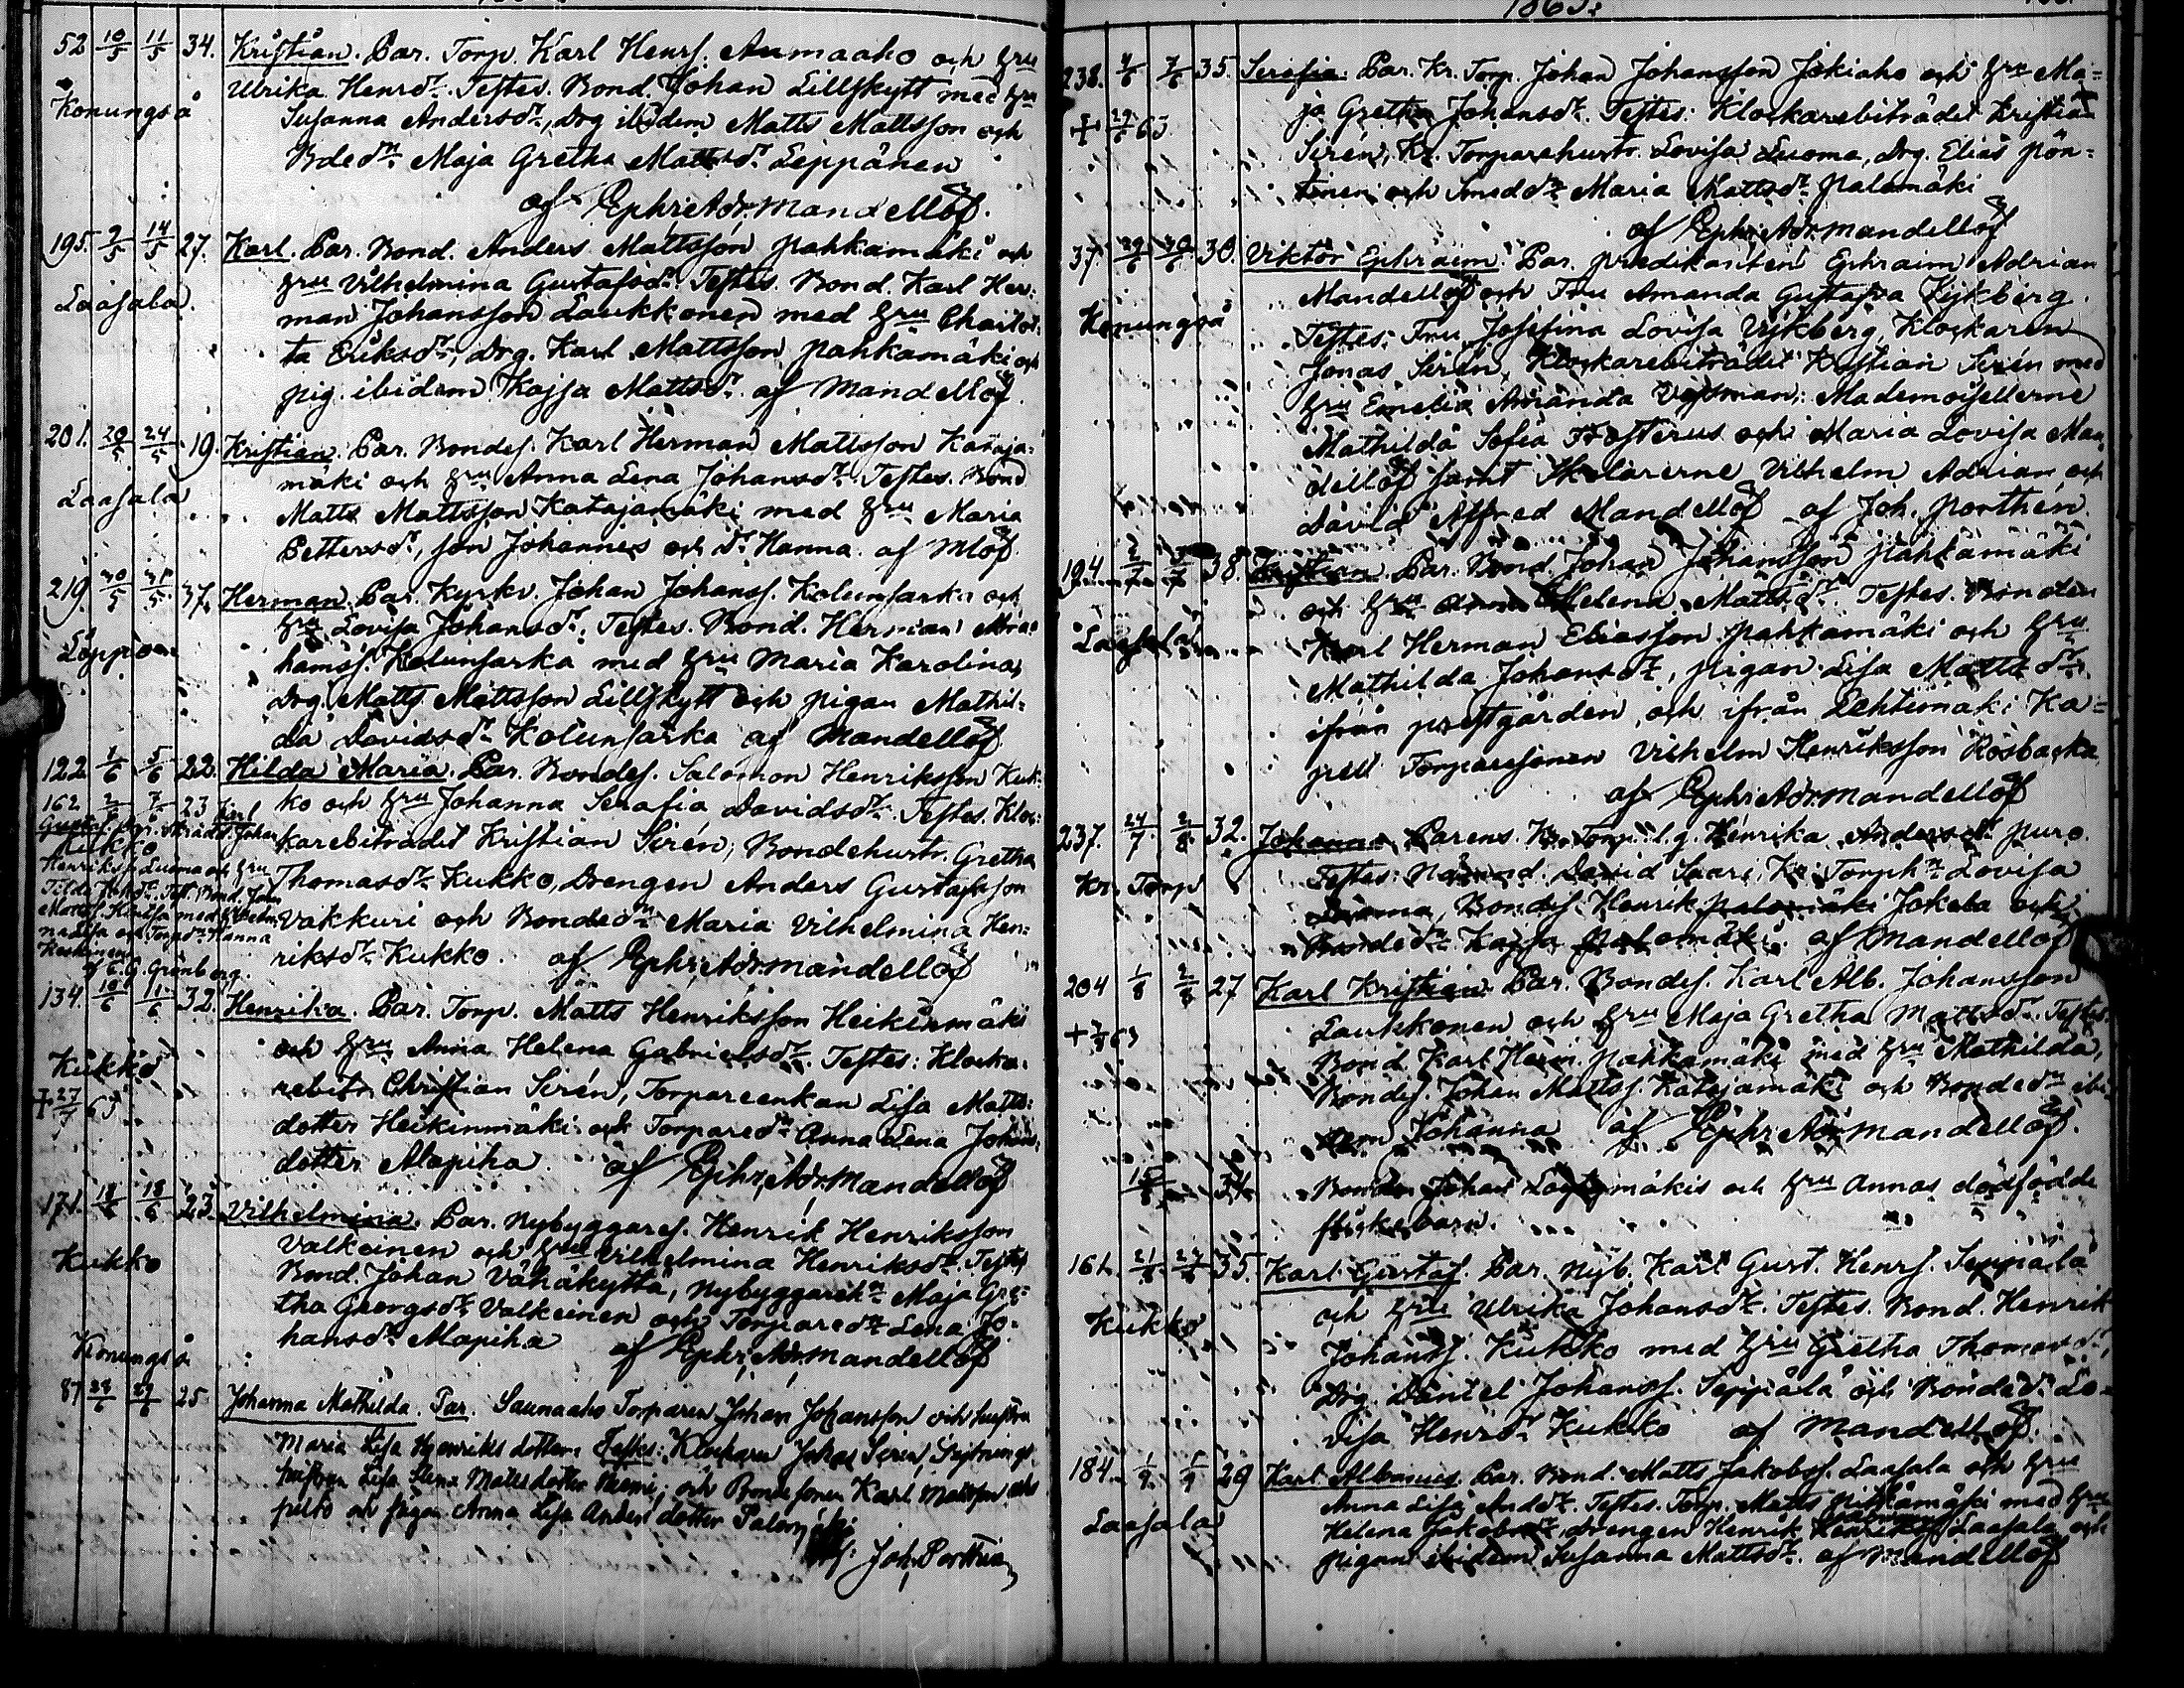 52 10/5 11/5 34. Kristian. Par. Torp. Karl Henrs. Aumaako och Hru
Konungså
Ulrika Henrsdr. Testes. Bond. Johan Lillskytt med Hru
Susanna Andersdr., Drg ibidem Matts Mattsson och
Bdedn Maja Gretha Mattsdr. Leppänen
af Ephr. Adr. Mandellöf.
195. 9/5 14/5 27. Karl. Par. Bond. Anders Mattsson Pahkamäki och
Laasala.
Hru Vilhelmina Gustafsdr. Testes. Bond. Karl Her=
man Johansson Laukkonen med Hru Charlot=
ta Eriksdr., Drg. Karl Mattsson Pahkamäki och
pig. ibidem Kajsa Mattsdr. af Mandellöf.
201. 20/5 24/5 19. Kristian. Par. Bondes. Karl Herman Mattsson Kataja=
Laasala
mäki och Hru Anna Lena Johansdr. Testes. Bond
Matts Mattsson Katajamäki med Hru Maria
Pettersdr., son Johannes och dr. Hanna. af Mlöf.
219. 30/5 31/5 37. Herman. Par. Kyrkv. Johan Johanss. Kolunsarka och
Löppom
Hru Lovisa Johansdr. Testes. Bond. Herman Abra=
hamss. Kolunsarka med Hru Maria Karolina,
Drg. Matts Mattsson Lillskytt och pigan Mathil=
da Davidsdr. Kolunsarka af Mandellöf
122 1/6 5/6 22. Hilda Maria. Par. Bondes. Salomon Henriksson Kuk=
ko och Hru Johanna Serafia Davidsdr. Testes. Kloc=
karebiträdet Kristian Sirén, Bondehustr. Gretha
Thomasdr. Kukko, Drengen Anders Gustafsson
Vakkuri och Bondedn Maria Vilhelmina Hen=
riksdr. Kukko. af Ephr. Adr. Mandellöf
162 2/6 7/6 23 Karl
Gustaf. Johan
Kukko
Henrikss. Luoma och Hru
Test. Bond. Joh.
Hanna
Keskinen
af C. G. Grönberg.
134. 10/6 11/6 32. Henrika. Par. Torp. Matts Henriksson Heikinmäki
Kukko
+ 27/7 63
och Hru Anna Helena Gabrielsdr. Testes: Klocka=
rebitr. Christian Sirén, Torpareenkan Lisa Matts=
dotter Heikinmäki och Torparedn Anna Lena Johans=
dotter Alapiha af Ephr. Adr. Mandellöf
171. 12/6 18/6 23. Vilhelmina. Par. Nybyggares. Henrik Henriksson
Kukko
Valkeinen och Hru Vilhelmina Henriksdr. Testes
Bond. Johan Vähäkyttä, Nybyggareh. Maja Gre=
tha Georgsdr. Valkeinen och Torparedn Lena Jo=
hansdr. Alapiha af Ephr. Adr. Mandellöf
Konungså
87 28/6 29/6 25 Johanna Mathilda. Par. Saunaaho Torparen Johan Johansson och hustru
Maria Lisa Henriksdotter. Testes: Klockaren Jonas Sirén,
hustrun Lisa Lena Mattsdotter och Bondesonen Karl Mattsson
och pigan Anna Lisa Andersdotter
af: Joh. Porthén

1863.
238. 4/6 7/6 35. Serafia. Par. Kr. Torp. Johan Johansson Jokiaho och Hru Ma=
+ 29/6 63
ja Gretha Johansdr. Testes: Klockarebiträdet Kristian
Sirén, Kr. Torparehustr. Lovisa Luoma, Drg. Elias Pön=
tinen och Smeddn Maria Mattsdr. Palomäki
af Ephr. Adr. Mandellöf
37. 29/6 30/6 30. Viktor Ephraim. Par. Predikanten Ephraim Adrian
Konungså
Mandellöf och Fru Amanda Gustafva Lijkberg.
Testes: Fru Josefina Lovisa Vijkberg, Klockaren
Jonas Sirén, Klockarebiträdet Kristian Sirén med
Hru Emelia Amanda Vassman, Mademoisellerne
Mathilda Sofia Frosterus och Maria Lovisa Man=
dellöf samt Skolarerne Vilhelm Adrian och
David Alfred Mandellöf af Joh. Porthén.
194 38. Kristian Par. Bond. Johan Johansson Pahkamäki
Laasala
och Hru Anna Helena Mattsdr. Testes. Bonden
Karl Herman Eliasson Pahkamäki och Hru
Mathilda Johansdr., pigan Lisa Mattsdr.
ifrån prestgården, och ifrån Lehtimäki Ka=
pell Torparesonen Vilhelm Henriksson Rösbacka
af Ephr. Adr. Mandellöf
237. 24/7 2/8 32. Johanna. Parens. Kr. Torp. l. g. Henrika Andersdr. Puro.
Kr. Torp
Testes: David Saari, Kr. Torph. Lovisa
Luoma, Bondes. Henrik Palomäki Jokela och
Bondedn Kajsa Palomäki. af Mandellöf
204 1/8 2/8 27 Karl Kristian. Par. Bondes. Karl Alb. Johansson
Laukkonen och Hru Maja Gretha Mattsdr. Testes.
Bond Karl Herm. Pahkamäki med Hru Mathilda,
Bondes. Johan Mattss. Katajamäki och Bondedn ibi=
dem Johanna af Ephr. Adr. Mandellöf.
Bonden Johan mäkis och Hru Annas dödfödda
flickebarn.
161. 35. Karl Gustaf. Par. Nyb. Karl Gust. Henrs. Seppälä
Kukko
och Hru Ulrika Johansdr. Testes. Bond. Henrik
Johanss. Kukko med Hru Gretha Thomasdr.,
Drg. Daniel Johanss. Seppälä och Bondedr. Lo=
visa Henrsdr. Kukko af Mandellöf.
184. 29 Karl Albanus. Par. Bond. Matts Jakobss. Laasala och Hru
Laasala
Anna Lisa Andsdr. Testes. Torp. Matts Pitkämäki med Hru
Helena Jakobsdr., drengen Henrik Laasala och
pigan ibidem Susanna Mattsdr. af Mandellöf